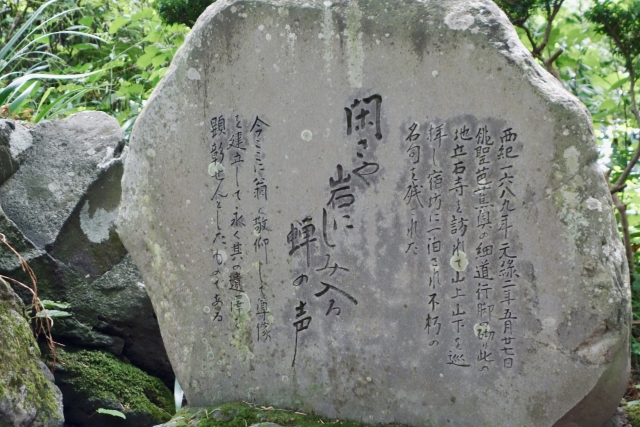 西紀一六八九年(元禄二年五月廿七日)
俳聖芭蕉真の細道行脚の砌り此の
地立石寺を訪れて山上山下を巡
拝し宿坊に一泊され不朽の
名句を残された
閑さや
岩に
しみ入る
蝉の声
今ここに翁を敬仰して尊像
を建立して永く其の遺澤を
顕彰せんとしたものである